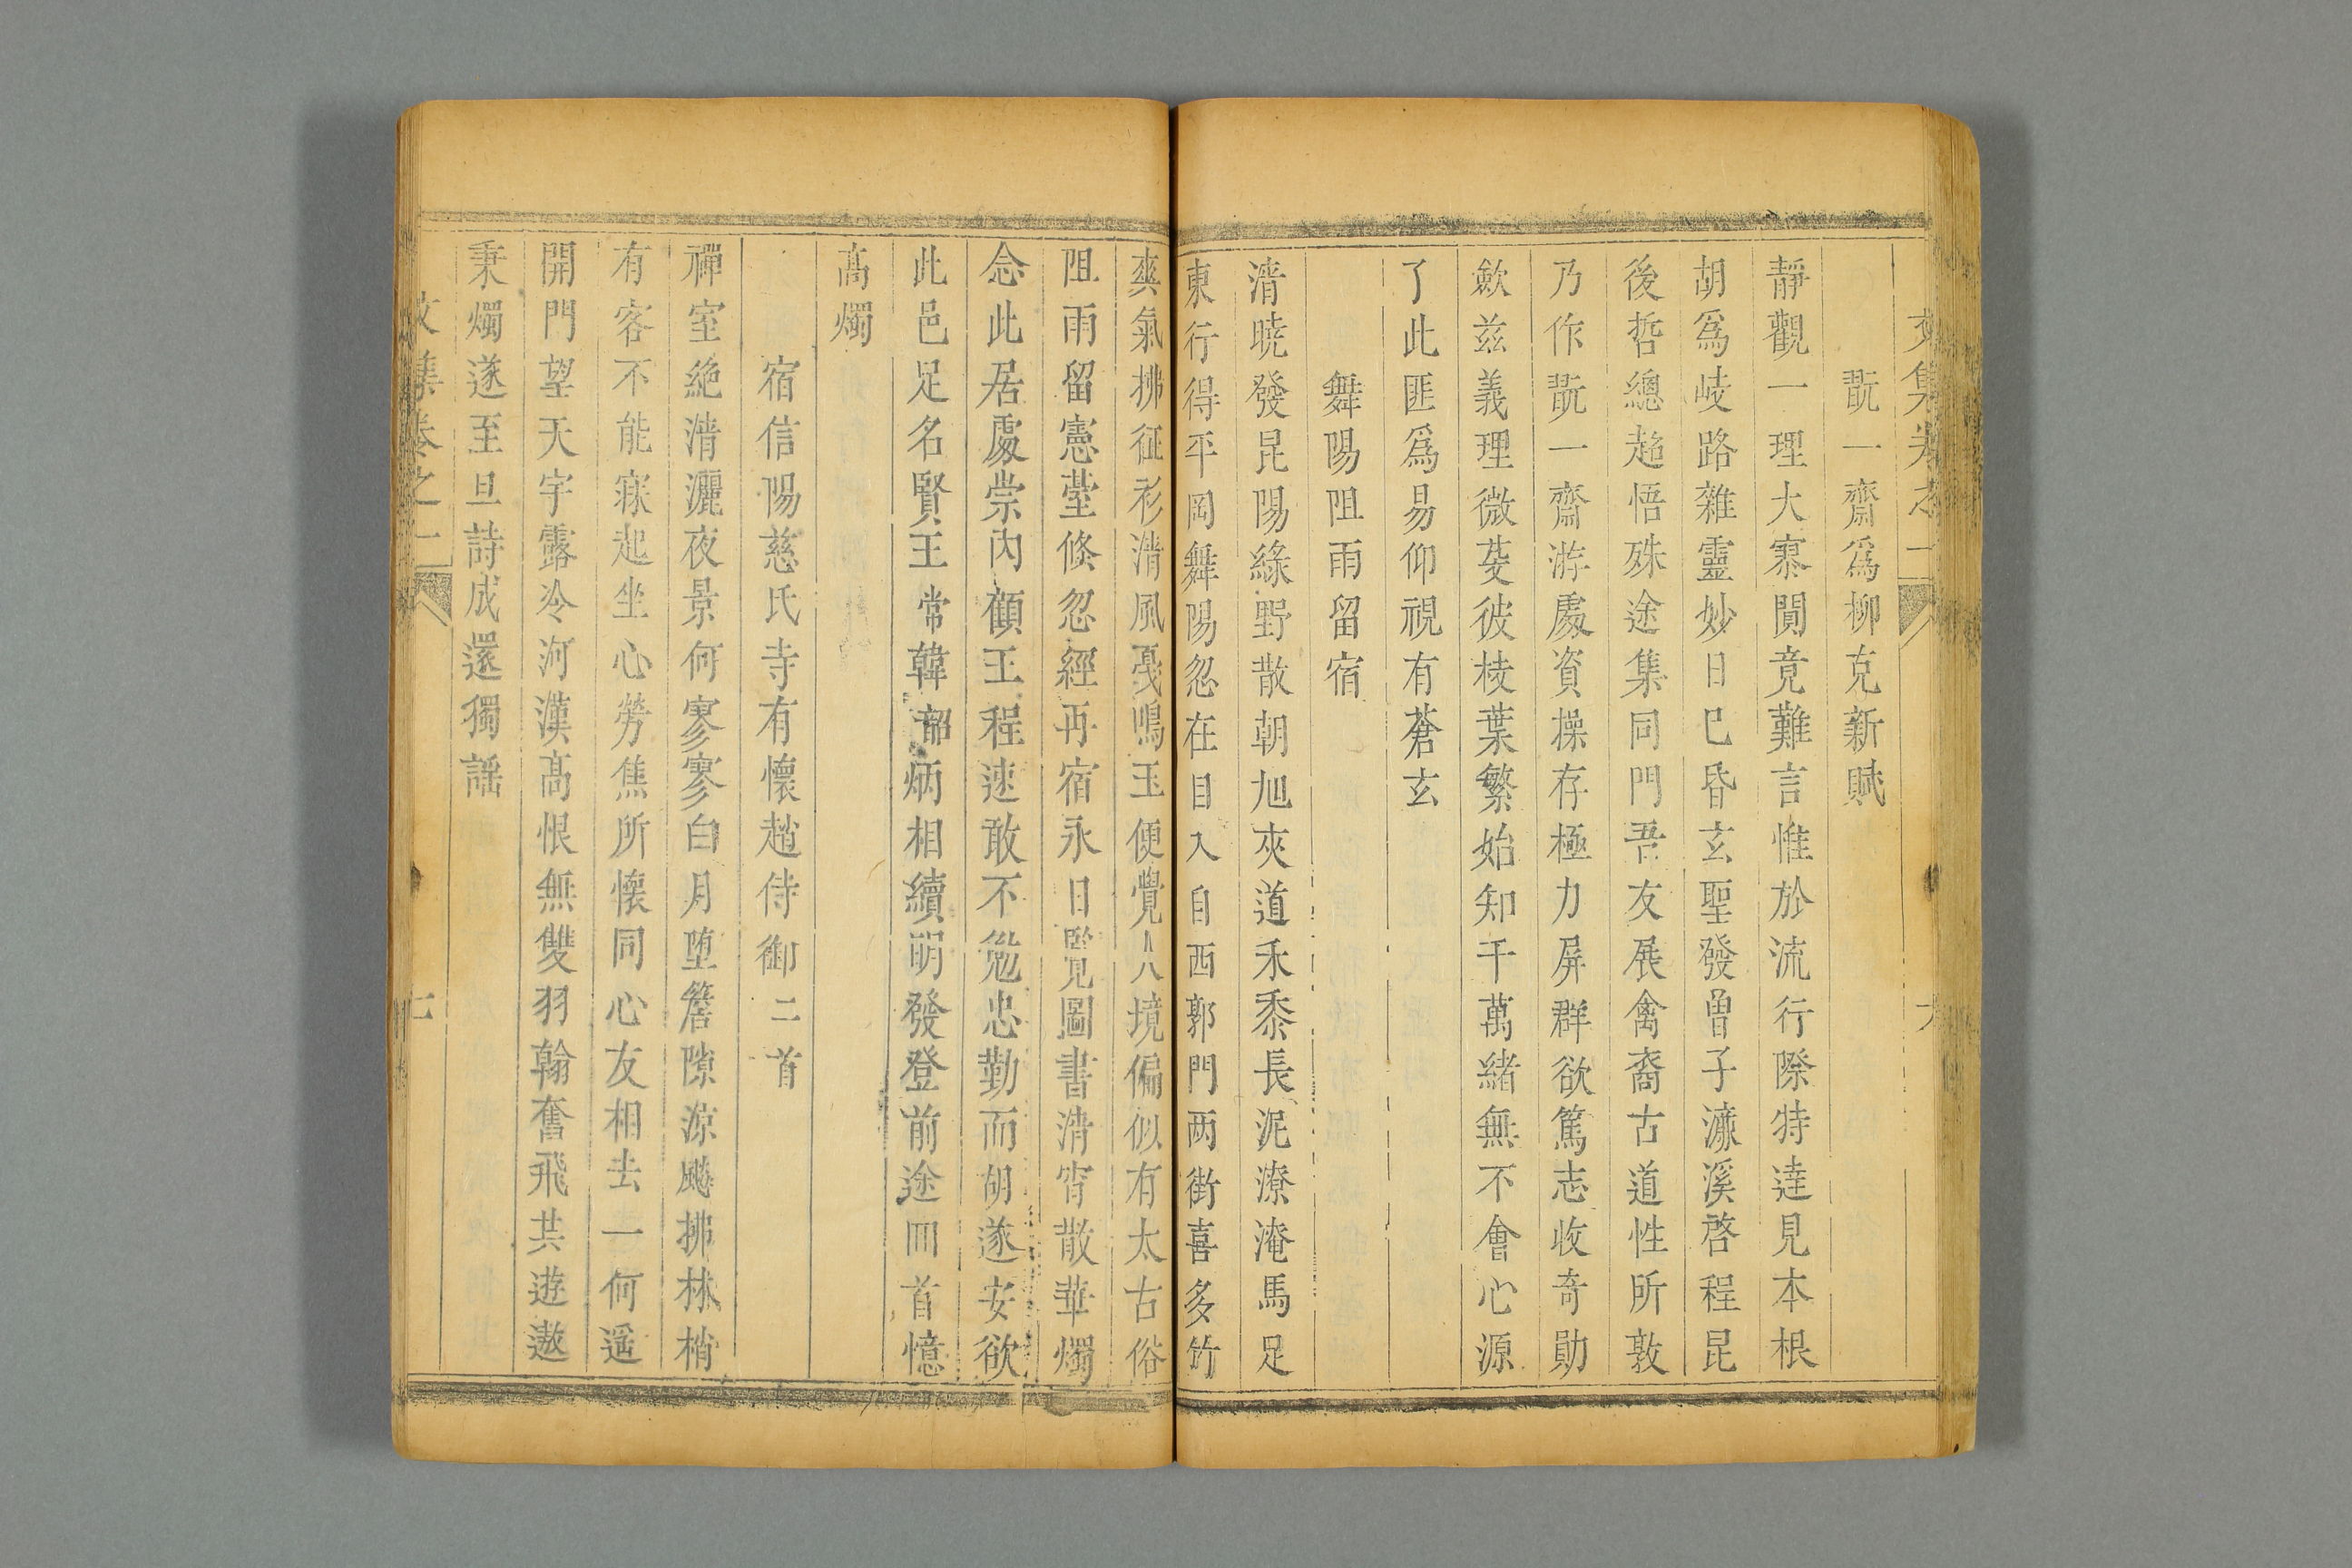 文集卷之一
六
翫一齋爲柳克新賦
靜觀一理大寥閴竟難言惟於流行際特達見本根
胡爲岐路雜靈妙日已昏玄聖發曽子濂溪啓程昆
後哲總超悟殊途集同門吾友展禽裔古道性所敦
乃作翫一齋游處資操存極力屏群欲篤志收奇勛
歛兹義理微芟彼棱葉繁始知千萬緒無不會心源
了此匪爲易仰視有蒼玄
舞陽阻雨留宿
清曉發昆陽綠野散朝旭夾道禾黍長泥潦淹馬足
東行得平岡舞陽忽在目入自西郭門两街喜多竹
爽氣拂征衫清風戞鳴玉便覺人境偏似有太古俗
阻雨留憲䑓倐忽經再宿永日覽圖書清宵散華燭
念此居處崇内顧王程速敢不勉忠勤而胡遂安欲
此邑足名賢王常韓韶炳相續明發登前途回首憶
高燭
宿信陽慈氏寺有懷趙侍御二首
禪室絶清灑夜景何寥寥白月堕簷隙凉飈拂林梢
有客不能寐起坐心勞焦所懷同心友相去一何遥
開門望天宇露冷河漢高恨無雙羽翰奮飛共遊遨
秉燭遂至旦詩成還獨謡
文集卷之一
七